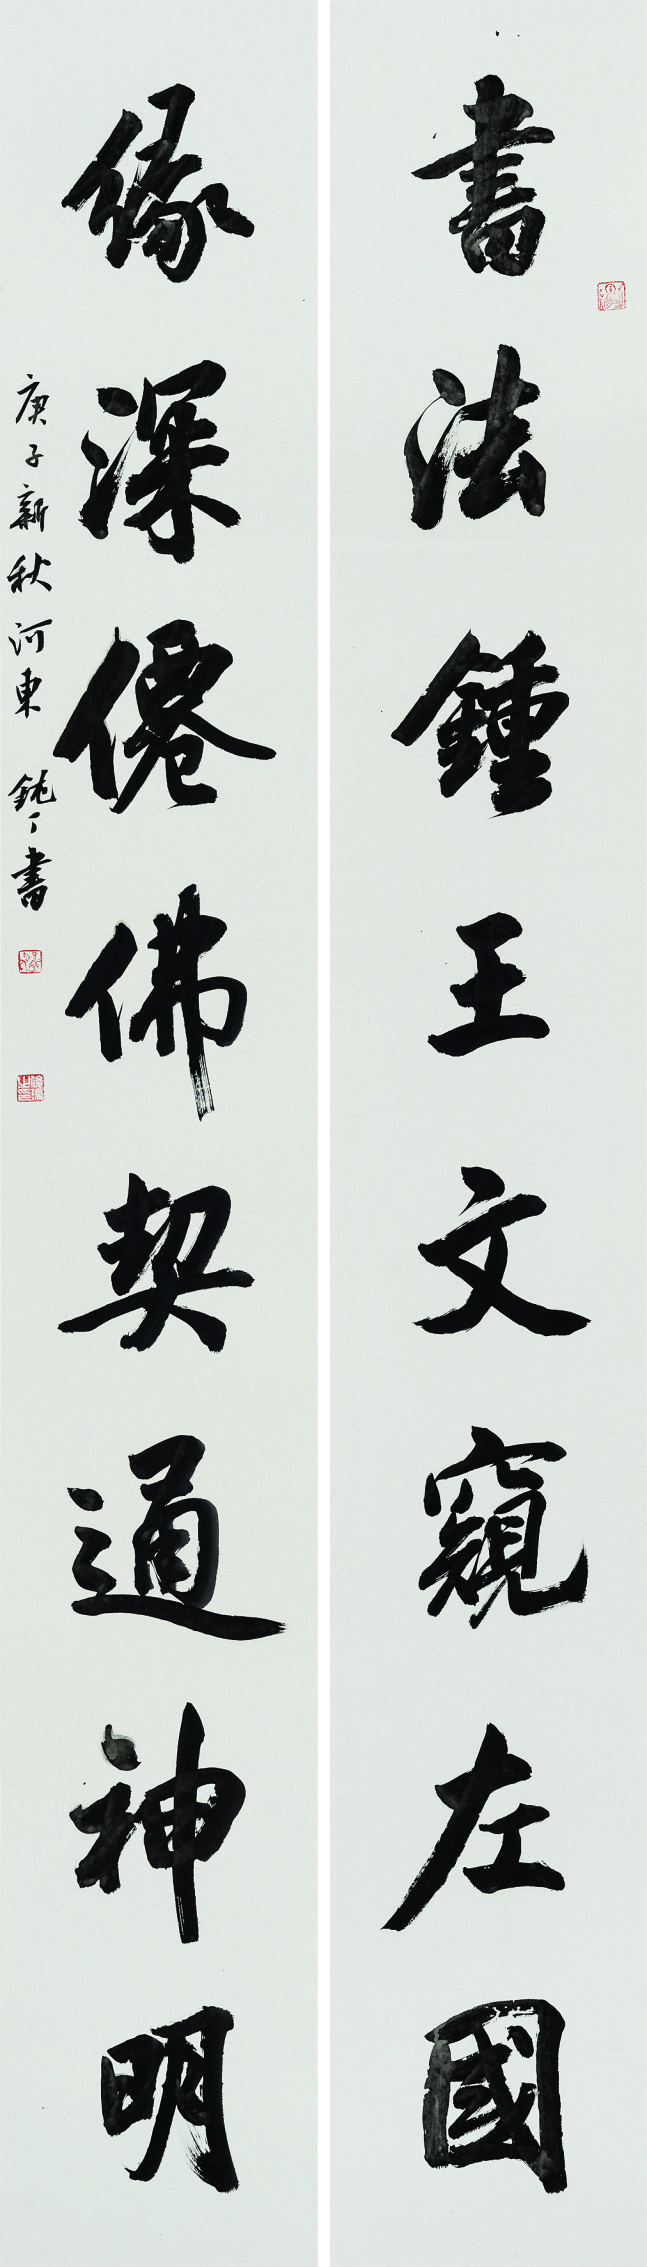 書法鍾王文窺左國
緣深僊佛契通神明
庚子新秋河東 鈍丁書